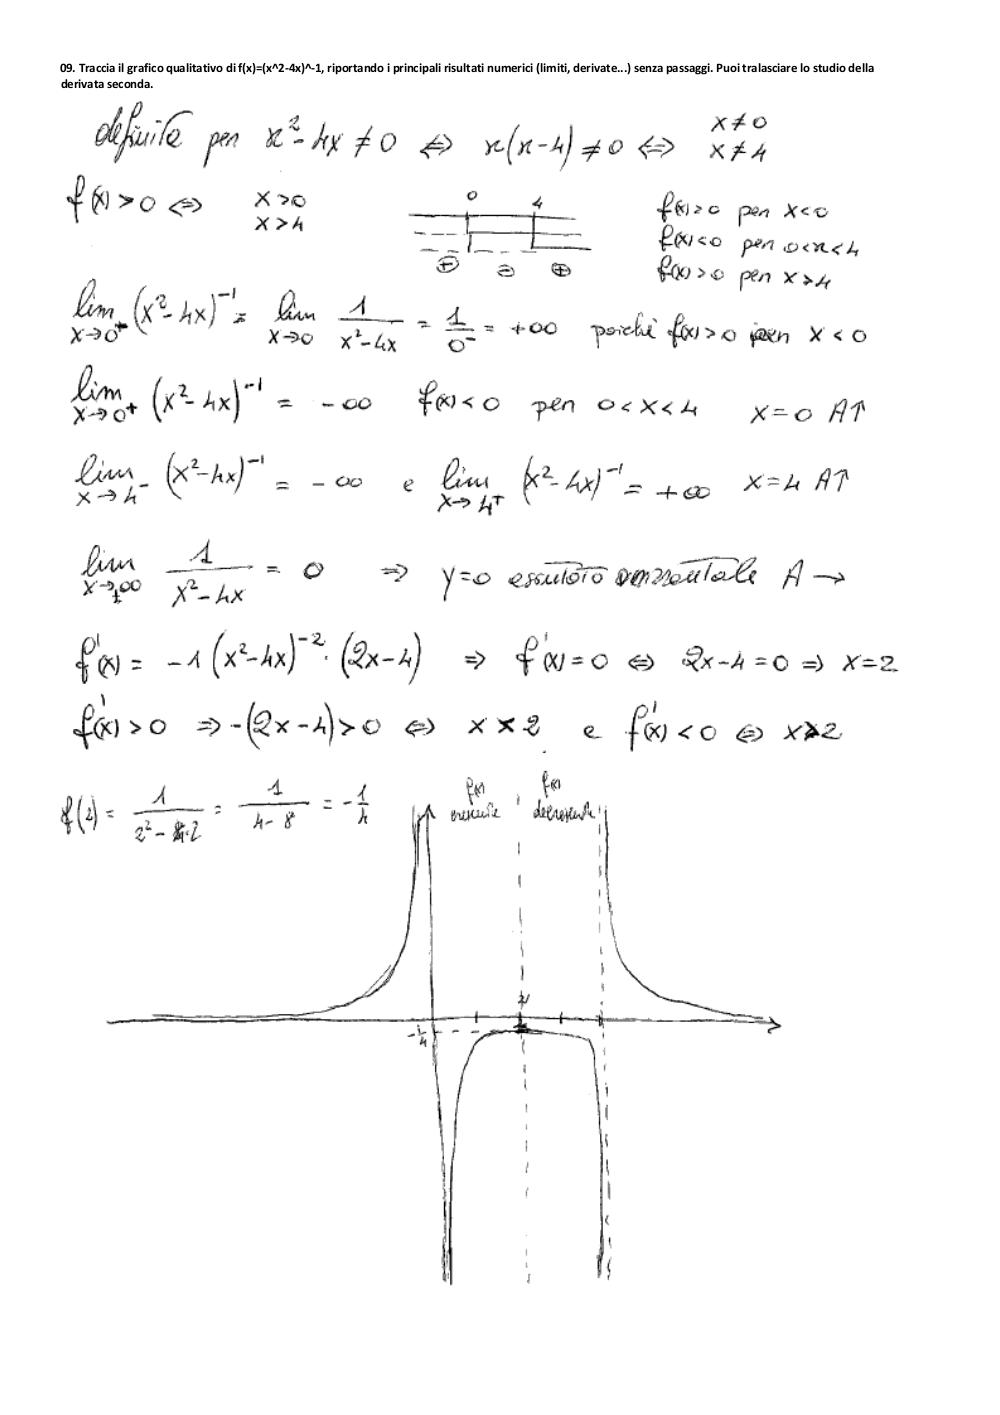 09. Traccia il grafico qualitativo di f(x)=(x^2-4x)^-1, riportando i principali risultati numerici (limiti, derivate...) senza passaggi. Puoi tralasciare lo studio della
derivata seconda.
definita per x²-4x≠0 ⇔ x(x-4)≠0 ⇔ x≠0
x≠4
f(x)>0 ⇔ x>0
x>4
0 4
+ - +
f(x)>0 per x<0
f(x)<0 per 0<x<4
f(x)>0 per x>4
lim x→0 (x²-4x)⁻¹ = lim x→0 1/(x²-4x) = 1/0⁻ = +∞ poiché f(x)>0 per x<0
lim x→0⁺ (x²-4x)⁻¹ = -∞ f(x)<0 per 0<x<4 x=0 A↑
lim x→4⁻ (x²-4x)⁻¹ = -∞ e lim x→4⁺ (x²-4x)⁻¹ = +∞ x=4 A↑
lim x→±∞ 1/(x²-4x) = 0 ⇒ y=0 A→
f'(x) = -1(x²-4x)⁻²·(2x-4) ⇒ f'(x)=0 ⇔ 2x-4=0 ⇒ x=2
f'(x)>0 ⇒ -(2x-4)>0 ⇔ x<2 e f'(x)<0 ⇔ x>2
f(2) = 1/(2²-4·2) = 1/(4-8) = -1/4
f(x) crescente
f(x) decrescente
2
-1/4